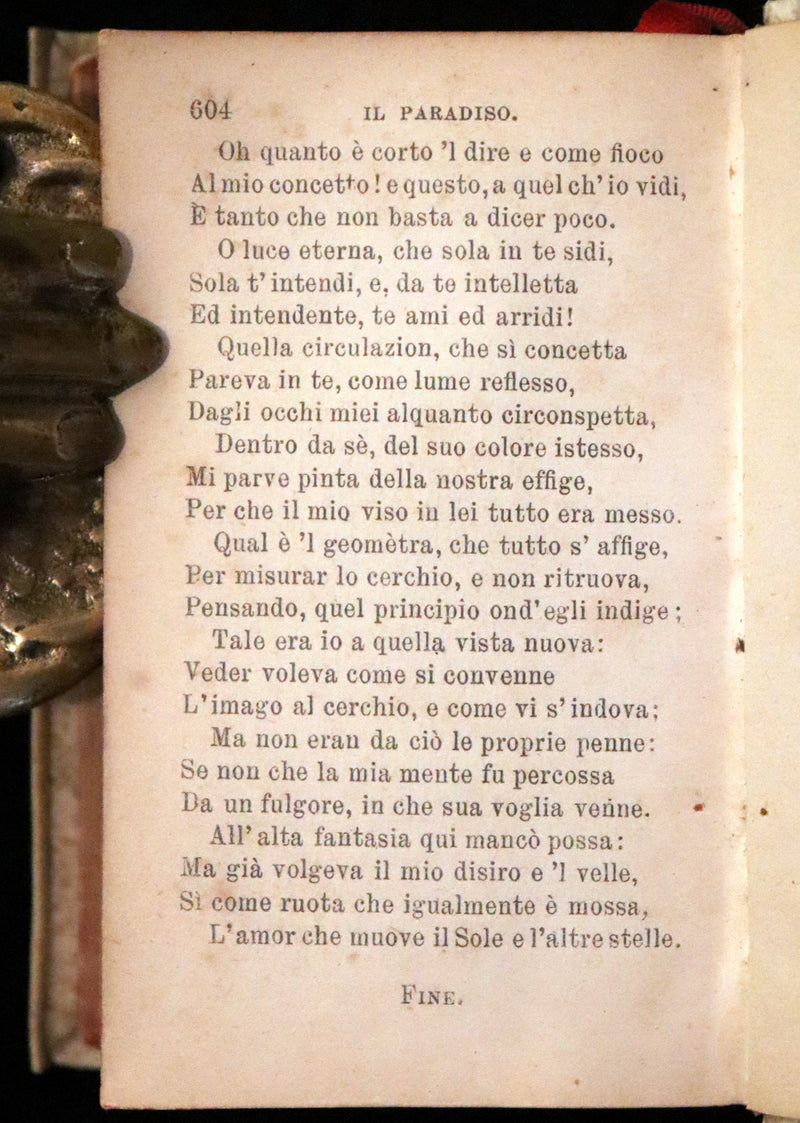 604 IL PARADISO.
Oh quanto è corto ’l dire e come fioco
Al mio concetto! e questo, a quel ch’ io vidi,
È tanto che non basta a dicer poco.
O luce eterna, che sola in te sidi,
Sola t’ intendi, e, da te intelletta
Ed intendente, te ami ed arridi!
Quella circulazion, che sì concetta
Pareva in te, come lume reflesso,
Dagli occhi miei alquanto circonspetta,
Dentro da sè, del suo colore istesso,
Mi parve pinta della nostra effige,
Per che il mio viso in lei tutto era messo.
Qual è ’l geomètra, che tutto s’ affige,
Per misurar lo cerchio, e non ritruova,
Pensando, quel principio ond’ egli indige;
Tale era io a quella vista nuova:
Veder voleva come si convenne
L’ imago al cerchio, e come vi s’ indova;
Ma non eran da ciò le proprie penne:
Se non che la mia mente fu percossa
Da un fulgore, in che sua voglia venne.
All’ alta fantasia qui mancò possa:
Ma già volgeva il mio disiro e ’l velle,
Sì come ruota che igualmente è mossa,
L’ amor che muove il Sole e l’altre stelle.
FINE.